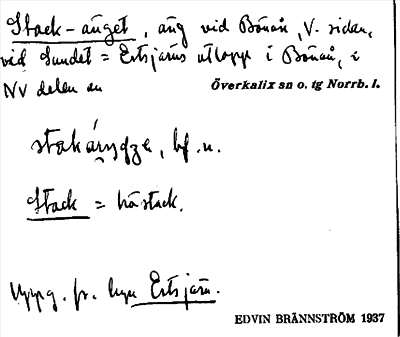 Stack-änget, äng vid Bönån, V. sidan,
vid Sundet = Ertsjärvs utlopp i Bönån, i
NV delen av
Överkalix sn o. tg Norrb. l.
bf. n.
Stack = höstack.
Uppg. fr. byn Ertsjärv.
EDVIN BRÄNNSTRÖM 1937